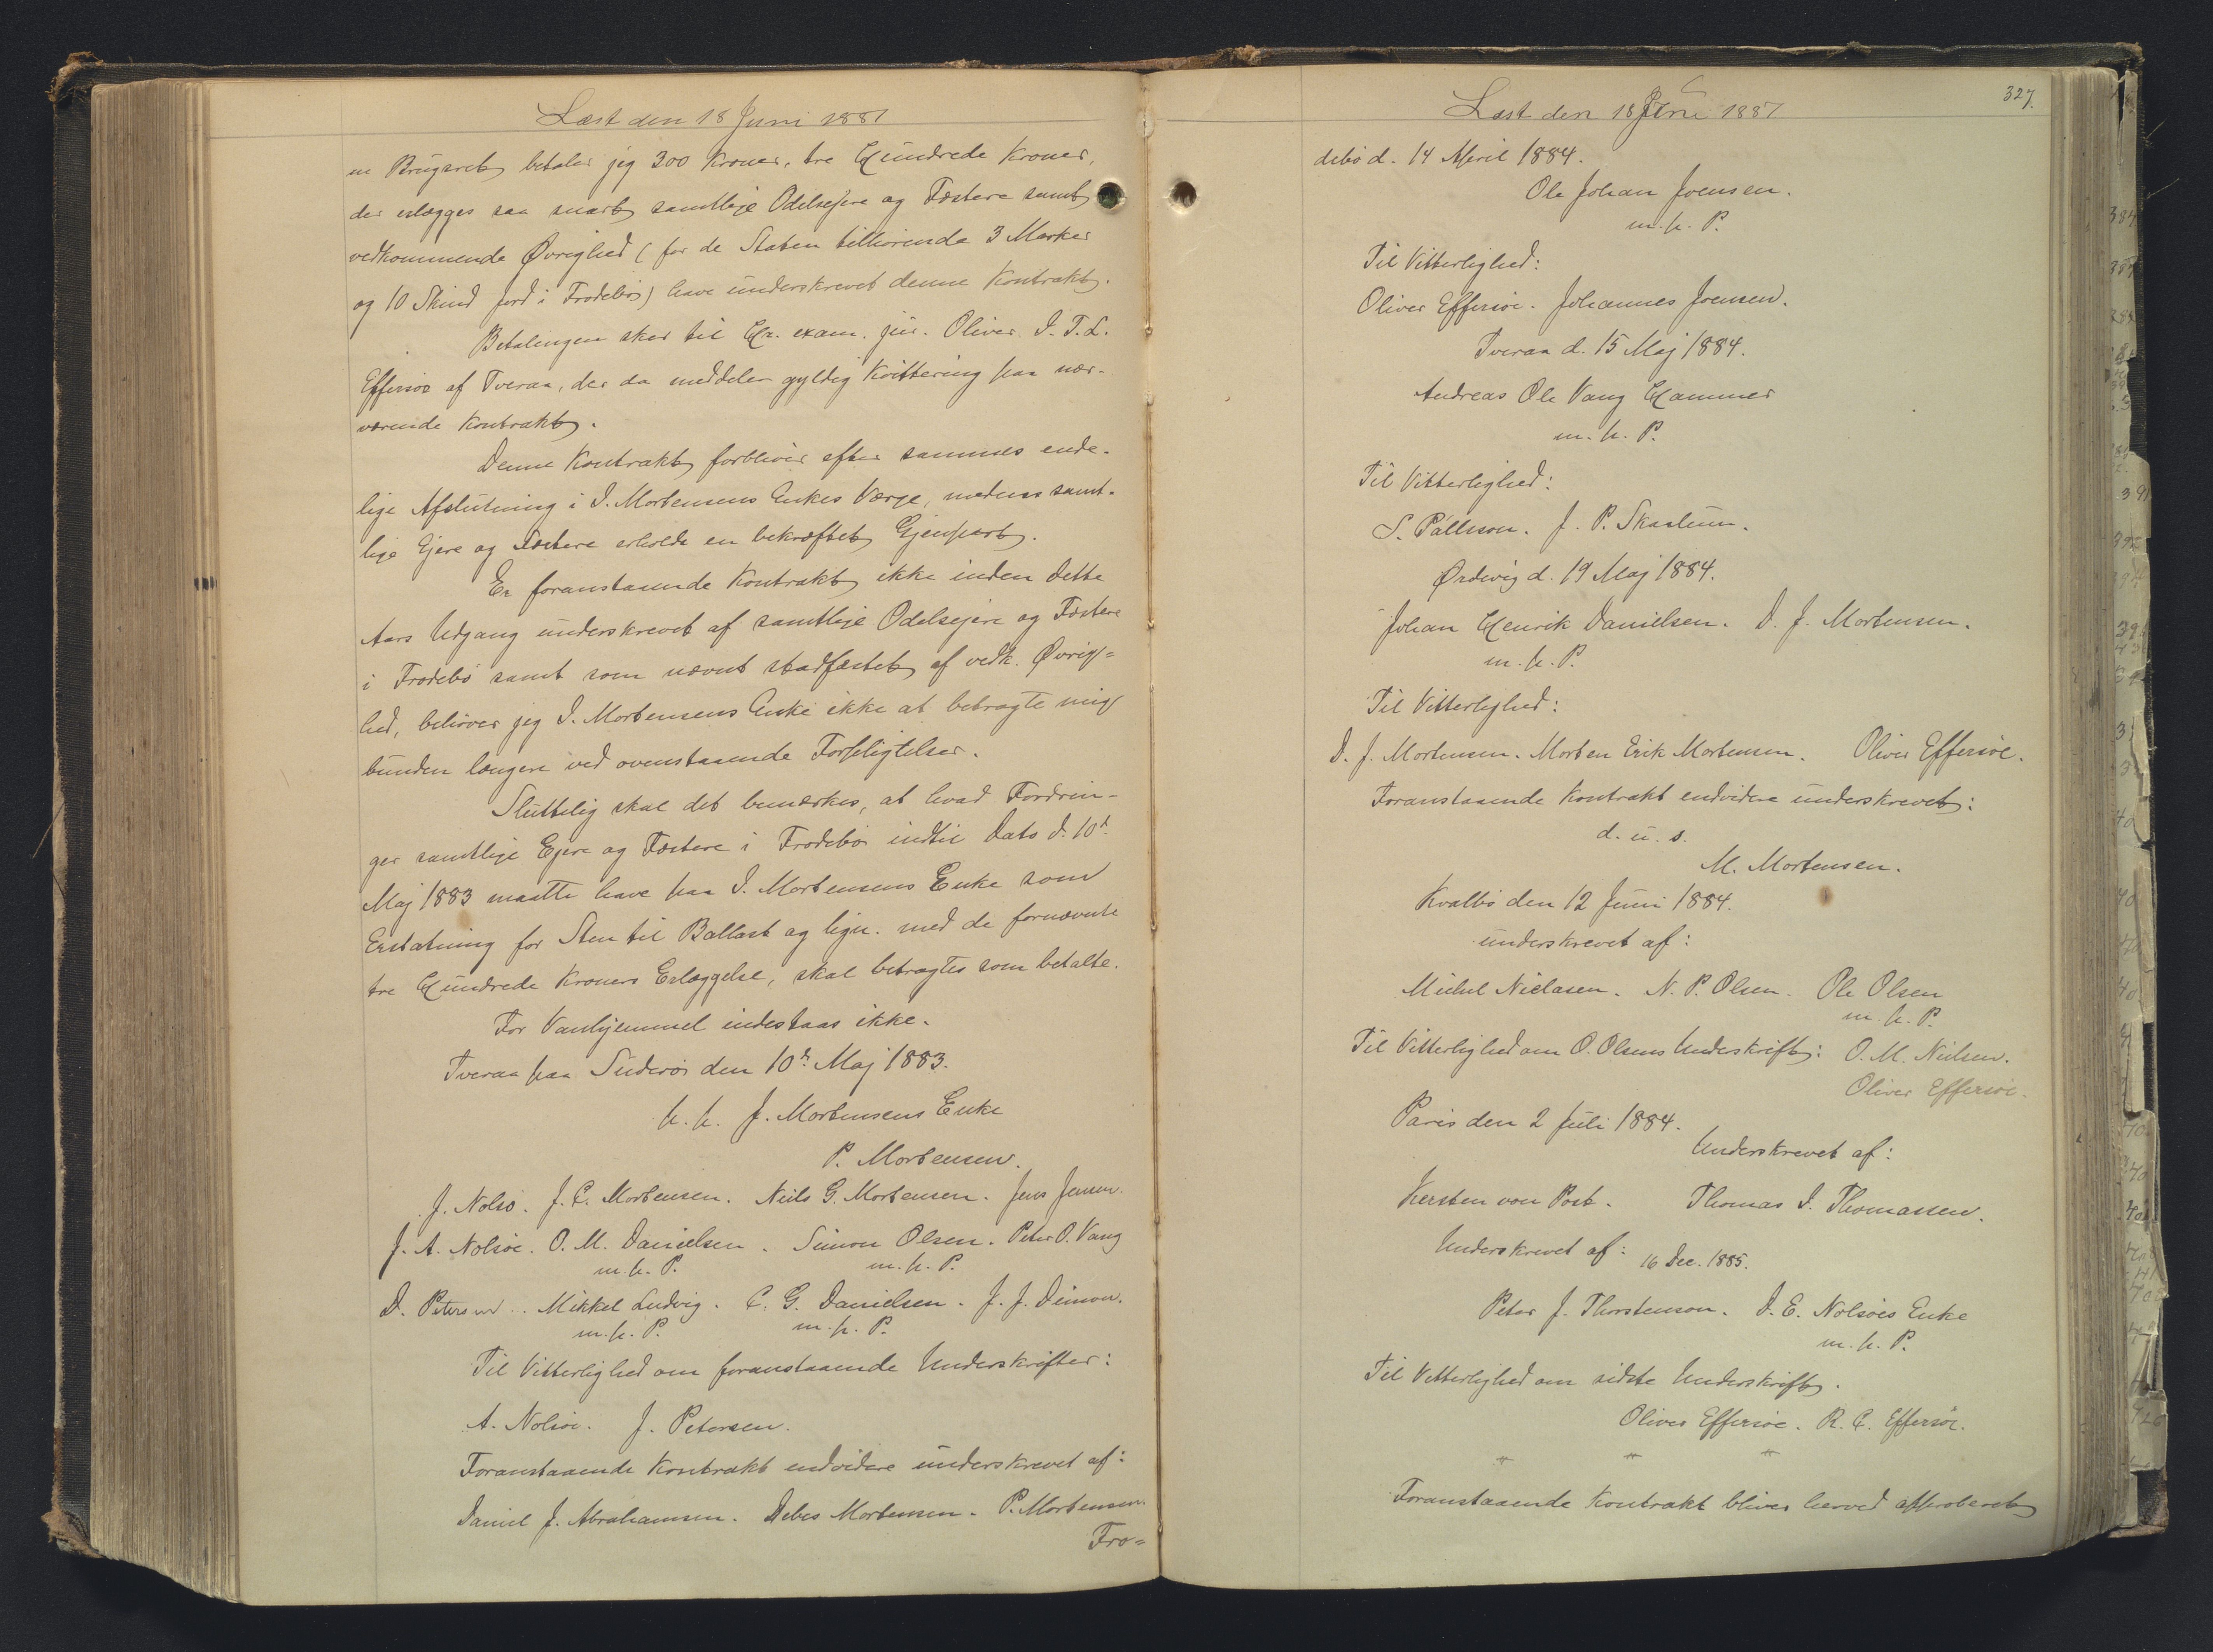 Læst den 18 Juni 1887
en Brugsret betaler jeg 300 Kroner, tre Hundrede Kroner,
der erlægges saa snart samtlige Odelsejere og Fæstere samt
vedkommende Øvrighed (for de Staten tilhørende 3 Marker
og 10 Skind Jord i Frodebø) have underskrevet denne Kontrakt.
Betalingen sker til Hr. exam. jur. Oliver I. T. L.
Effersøe af Tveraa, der da meddeler gyldig Kvittering paa nær-
værende Kontrakt.
Denne Kontrakt forbliver efter sammes ende-
lige Afslutning i J. Mortensens Enkes Værge, medens samt-
lige Ejere og Fæstere erholde en bekræftet Gjenpart.
Er foranstaaende Kontrakt ikke inden dette
Aars Udgang underskrevet af samtlige Odelsejere og Fæstere
i Frodebø samt som nævnt stadfæstet af vedk. Øvrig=
hed, behøver jeg J. Mortensens Enke ikke at betragte mig
bunden længere ved ovenstaaende Forpligtelser.
Sluttelig skal det bemærkes, at hvad Fordrin-
ger samtlige Ejere og Fæstere i Frodebø indtil Dato d. 10d
Maj 1883 maatte have paa J. Mortensens Enke som
Erstatning for Sten til Ballast og lign. med de fornævnte
tre Hundrede Kroners Erlæggelse, skal betragtes som betalte.
For Vanhjemmel indestaas ikke.
Tveraa paa Suderø den 10d Maj 1883.
p. p. J. Mortensens Enke
P. Mortensen.
J. Nolsø. J. C. Mortensen. Niels G. Mortensen. Jens Jensen.
J. A. Nolsøe. O. M. Danielsen. Simon Olsen. Peter O. Vang
m. p. P. m. p. P.
D. Petersen. Mikkel Ludvig. C. G. Danielsen. J. J. Dimon.
m. p. P. m. p. P.
Til Vitterlighed om foranstaaende Underskrifter:
A. Nolsøe. J. Petersen.
Foranstaaende Kontrakt endvidere underskrevet af:
Daniel J. Abrahamsen. Debes Mortensen. P. Mortensen.
Fro=
327.
Læst den 18 Juni 1887
debø d. 14 April 1884.
Ole Johan Joensen.
m. p. P.
Til Vitterlighed:
Oliver Effersøe. Johannes Joensen.
Tveraa d. 15 Maj 1884.
Andreas Ole Vang Hammer
m. p. P.
Til Vitterlighed:
S. Pálsson. J. P. Skaalum.
Ørdevig d. 19 Maj 1884.
Johan Henrik Danielsen. D. J. Mortensen.
m. p. P.
Til Vitterlighed:
D. J. Mortensen. Morten Erik Mortensen. Oliver Effersøe.
Foranstaaende Kontrakt endvidere underskrevet:
d. u. s.
M. Mortensen.
Kvalbø den 12 Juni 1884.
underskrevet af:
Michel Nielasen. N. P. Olsen. Ole Olsen
m. p. P.
Til Vitterlighed om O. Olsens Underskrift: O. M. Nielsen.
Oliver Effersøe.
Paris den 2 Juli 1884.
Underskrevet af:
Kersten von Post. Thomas I. Thomassen.
Underskrevet af: 16 Dec. 1885.
Peter J. Thorstenson. D. E. Nolsøes Enke
m. p. P.
Til Vitterlighed om sidste Underskrift.
Oliver Effersøe. R. C. Effersøe.
Foranstaaende Kontrakt bliver herved approberet